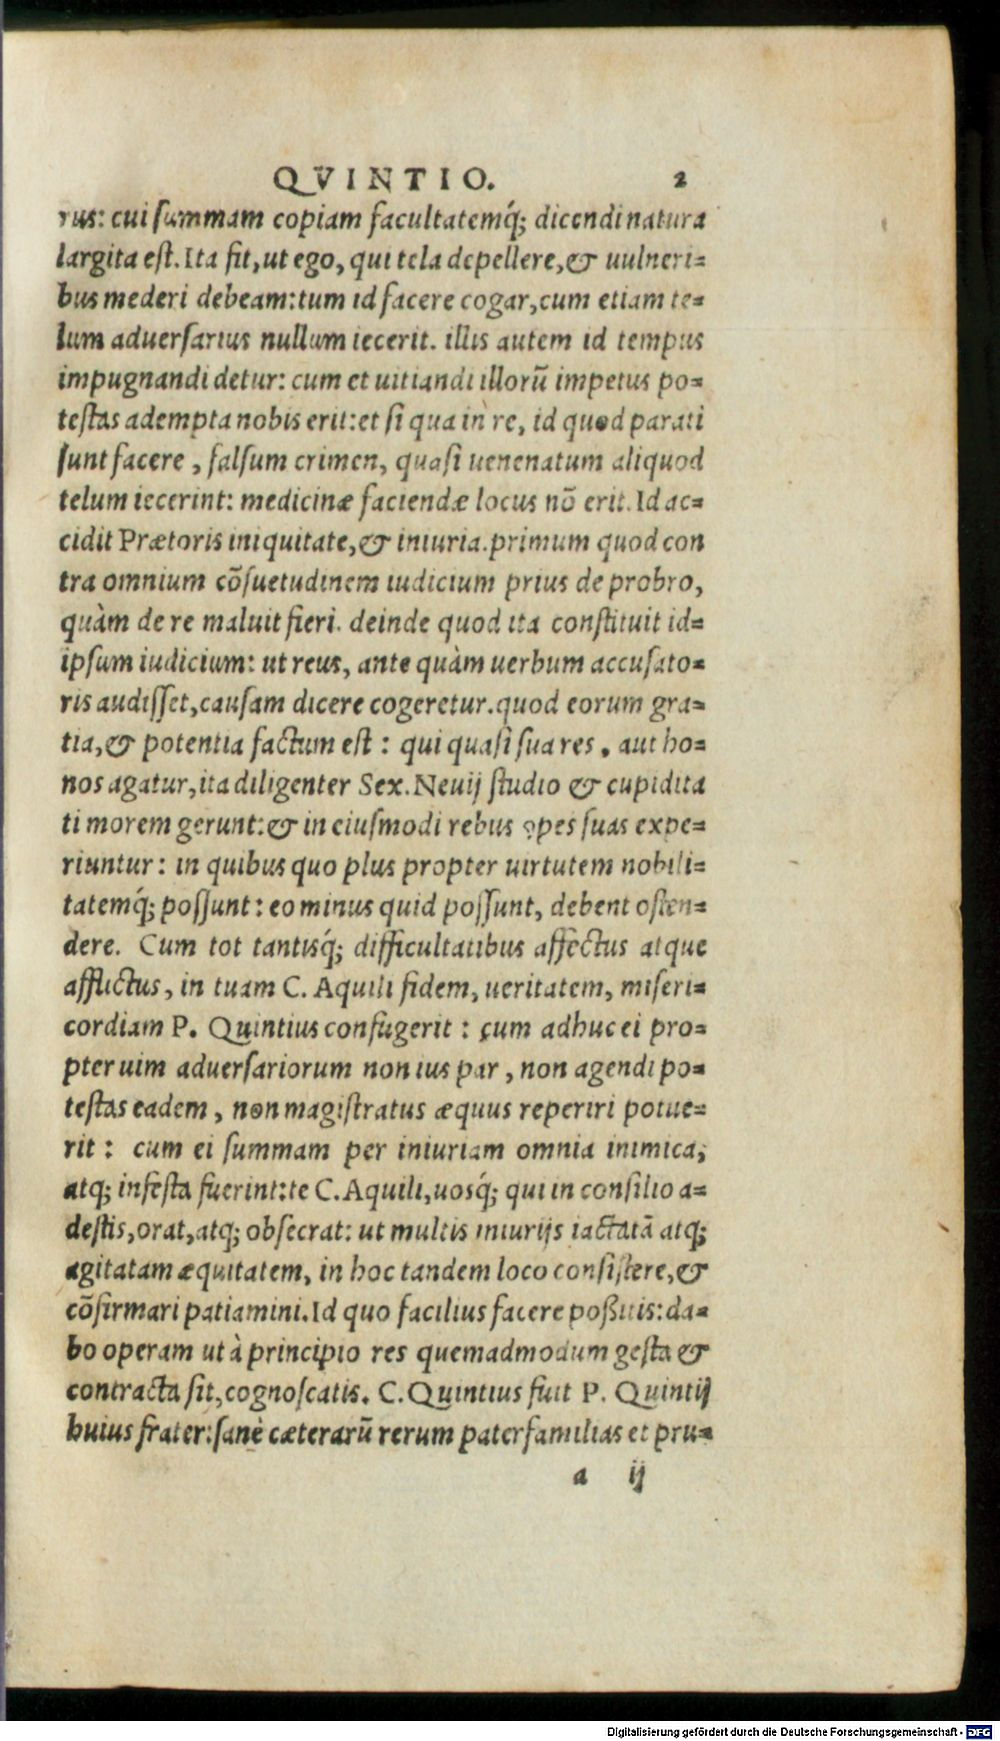 QVINTIO. 2
rus: cui summam copiam facultatemq́; dicendi natura
largita est. Ita fit, ut ego, qui tela depellere, & uulneri=
bus mederi debeam: tum id facere cogar, cum etiam te=
lum aduersarius nullum iecerit. illis autem id tempus
impugnandi detur: cum et uitiandi illorū impetus po=
testas adempta nobis erit: et si qua in re, id quod parati
sunt facere, falsum crimen, quasi uenenatum aliquod
telum iecerint: medicinæ faciendæ locus nō erit. Id ac=
cidit Prætoris iniquitate, & iniuria. primum quod con
tra omnium cōsuetudinem iudicium prius de probro,
quàm de re maluit fieri. deinde quod ita constituit id=
ipsum iudicium: ut reus, ante quàm uerbum accusato=
ris audisset, causam dicere cogeretur. quod eorum gra=
tia, & potentia factum est: qui quasi sua res, aut ho=
nos agatur, ita diligenter Sex. Neuij studio & cupidita
ti morem gerunt: & in eiusmodi rebus opes suas expe=
riuntur: in quibus quo plus propter uirtutem nobili=
tatemq́; possunt: eo minus quid possunt, debent osten=
dere. Cum tot tantisq́; difficultatibus affectus atque
afflictus, in tuam C. Aquili fidem, ueritatem, miseri=
cordiam P. Quintius confugerit: cum adhuc ei pro=
pter uim aduersariorum non ius par, non agendi po=
testas eadem, non magistratus æquus reperiri potue=
rit: cum ei summam per iniuriam omnia inimica,
atq; infesta fuerint: te C. Aquili, uosq́; qui in consilio a=
destis, orat, atq; obsecrat: ut multis iniurijs iactatā atq;
agitatam æquitatem, in hoc tandem loco consistere, &
cōfirmari patiamini. Id quo facilius facere poßitis: da=
bo operam ut à principio res quemadmodum gesta &
contracta sit, cognoscatis. C. Quintius fuit P. Quintij
huius frater: sanè cæterarū rerum paterfamilias et pru=
a ij
Digitalisierung gefördert durch die Deutsche Forschungsgemeinschaft - DFG